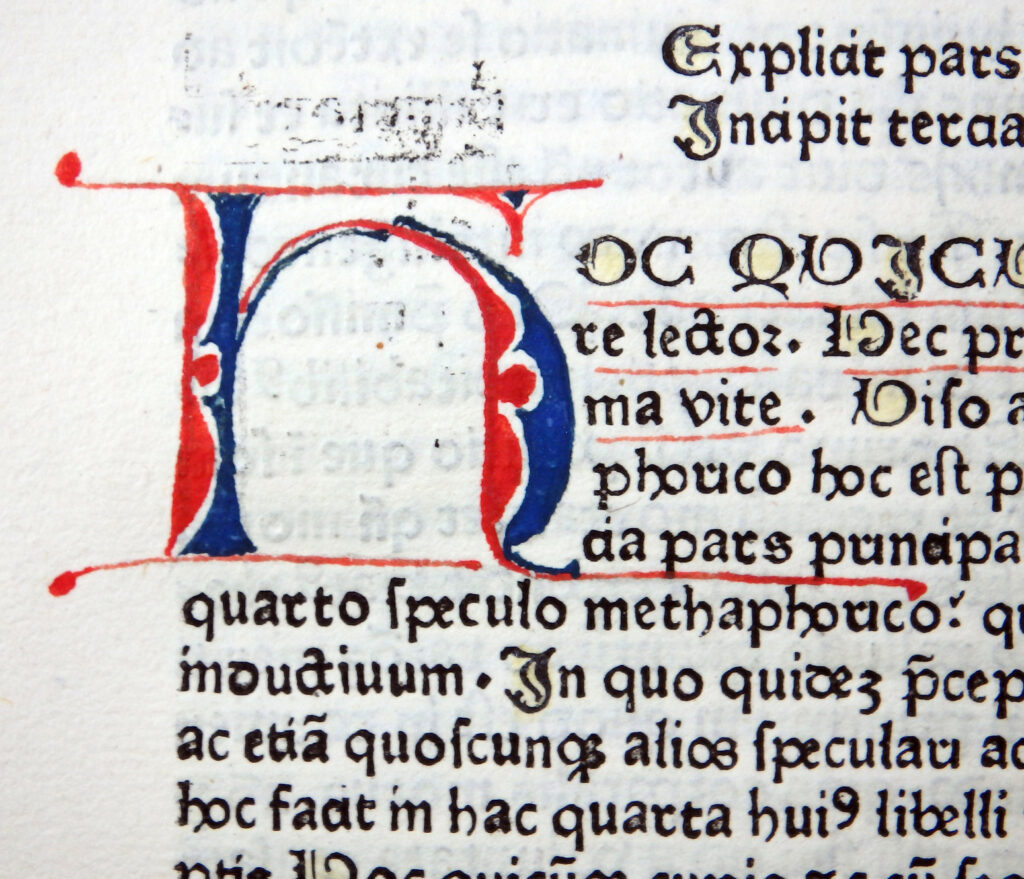 Explicit pars
Incipit tercia
HOC QVICV
re lector. Hec pr
ma vite. Viso a
phorico hoc eſt p
cia pars principa
quarto ſpeculo methaphorico: qu
inductiuum. In quo quidez p̄cep
ac etiā quoſcunqꝫ alios ſpeculari ad
hoc facit in hac quarta huiꝰ libelli
ptis